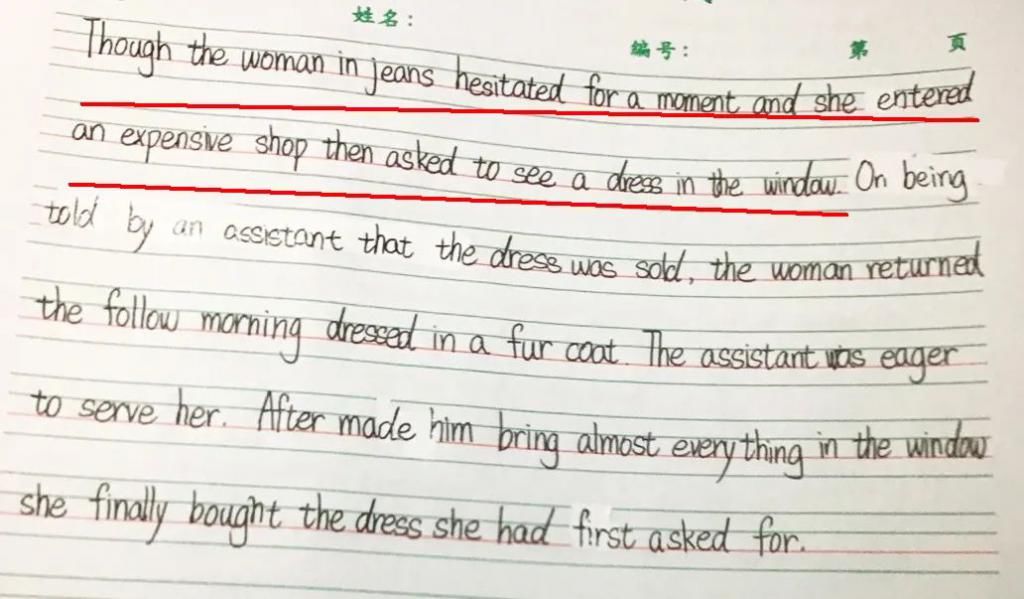 姓名:
编号: 第 页
Though the woman in jeans hesitated for a moment and she entered
an expensive shop then asked to see a dress in the window. On being
told by an assistant that the dress was sold, the woman returned
the follow morning dressed in a fur coat. The assistant was eager
to serve her. After made him bring almost everything in the window
she finally bought the dress she had first asked for.